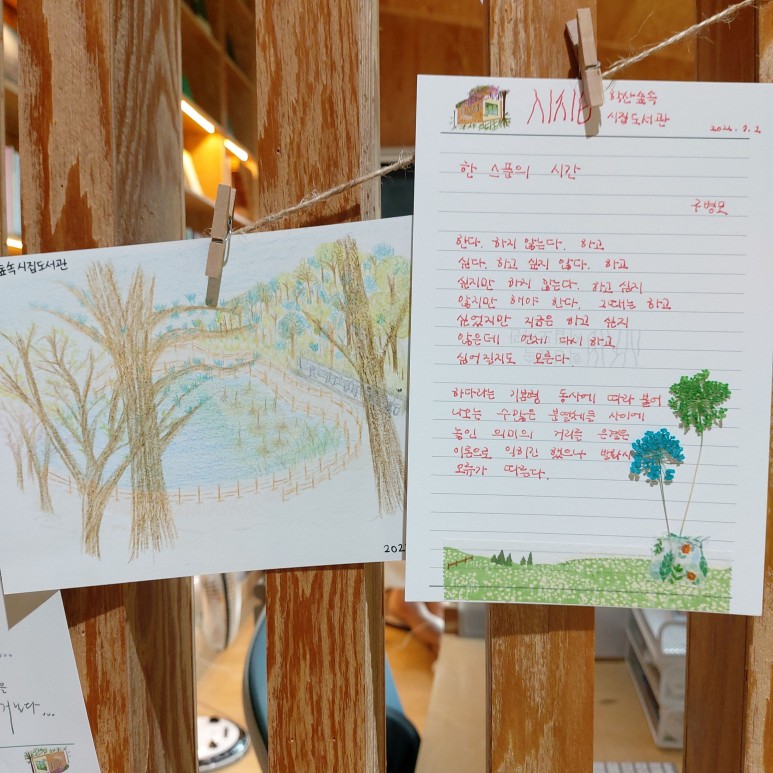 숲속시집도서관
202
시시한 학산숲속
시집도서관
2022. 9. 2
한 스푼의 시간
구병모
한다. 하지 않는다. 하고
싶다. 하고 싶지 않다. 하고
싶지만 하지 않는다. 하고 싶지
않지만 해야 한다. 그때는 하고
싶었지만 지금은 하고 싶지
않은데 언제 다시 하고
싶어 질지도 모른다.
하다라는 기본형 동사에 따라 붙어
나오는 수많은 분열체들 사이에
놓인 의미의 거리를 은결은
이론으로 익히긴 했으나 발화시
오류가 따른다.